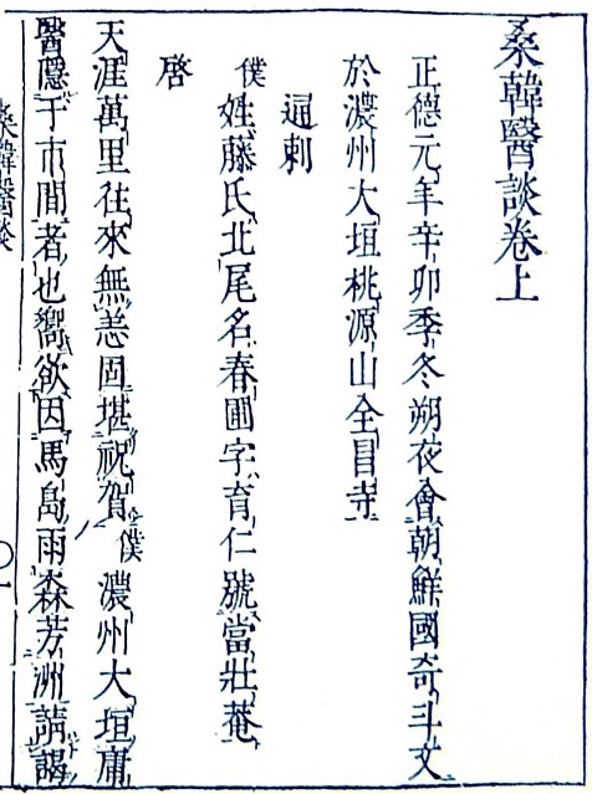 桑韓醫談卷上
正德元年辛卯季冬朔夜會朝鮮國奇斗文
於濃州大垣桃源山全昌寺
通刺
僕姓藤氏北尾名春圃字育仁號當壯菴
啓
天涯萬里往來無恙固堪祝賀僕濃州大垣庸
醫隱于市間者也嚮欲因馬島雨森芳洲請謁
桑韓醫談